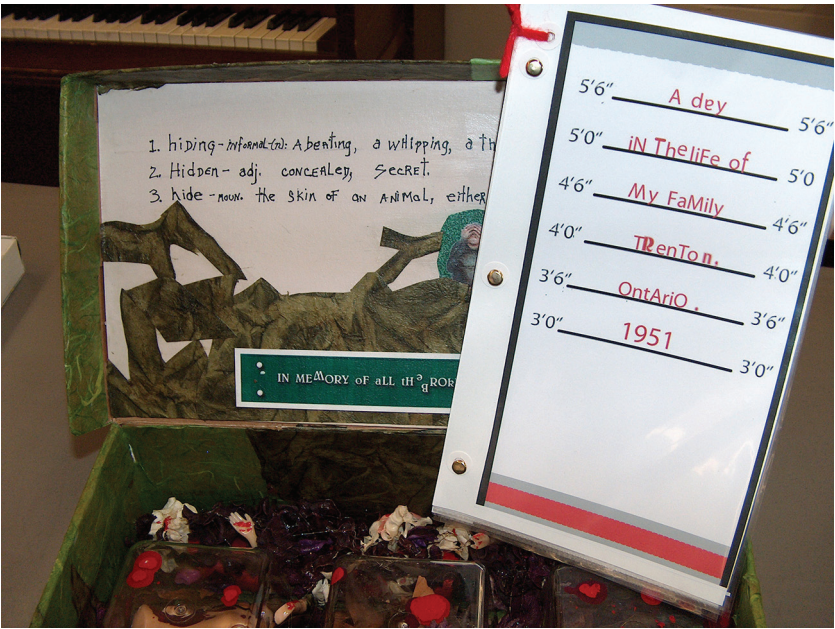 1. hiding - informal-(n): A beating, a whipping, a th
2. Hidden - adj. concealed, secret.
3. hide - noun. the skin of an animal, either
IN MEMORY oF aLL tHe BROK
5'6" A day 5'6"
5'0" iN The liFe of 5'0
4'6" My FaMily 4'6"
4'0" TRenTon. 4'0"
3'6" OntAriO . 3'6"
3'0" 1951 3'0"